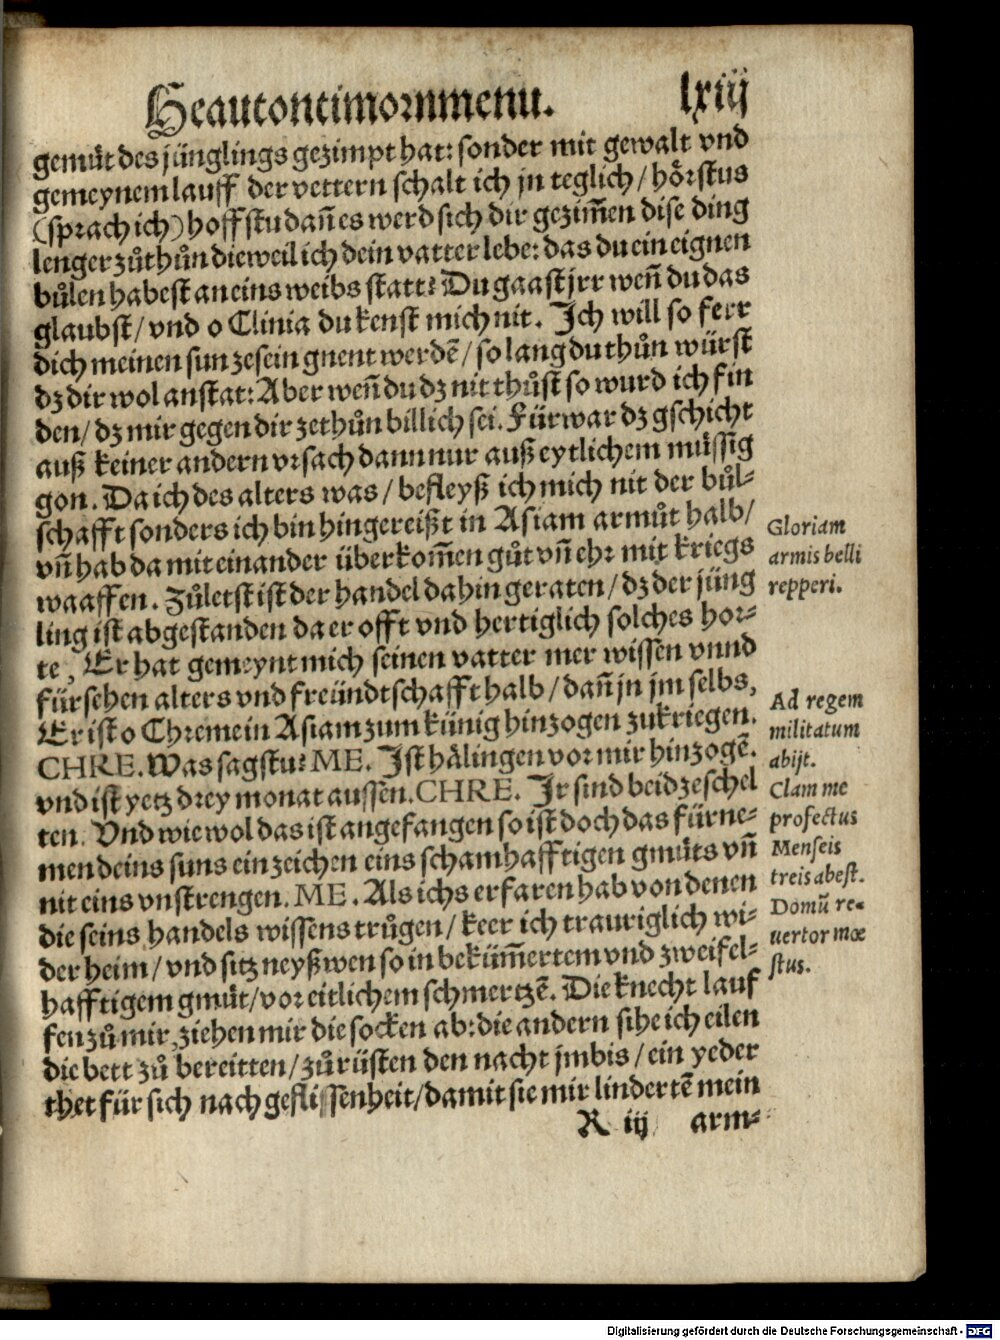 Heautontimorumenu. lxiij
gemüt des jünglings gezimpt hat: sonder mit gewalt vnd
gemeynem lauff der vettern schalt ich jn teglich / hörstus
(sprach ich) hoffstu dañ es werd sich dir gezim̄en dise ding
lenger zůthůn dieweil ich dein vatter lebe: das du ein eignen
bůlen habest an eins weibs statt? Du gaast jrr weñ du das
glaubst / vnd o Clinia du kenst mich nit. Ich will so ferr
dich meinen sun zesein gnent werdē / so lang du thůn würst
dz dir wol anstat: Aber weñ du dz nit thůst so wurd ich fin
den / dz mir gegen dir zethůn billich sei. Fürwar dz gschicht
auß keiner andern vrsach dann nur auß eytlichem müssig
gon. Da ich des alters was / befleyß ich mich nit der bůl⸗
schafft sonders ich bin hingereißt in Asiam armůt halb /
vñ hab da mit einander überkom̄en gůt vñ ehr mit kriegs
waaffen. Zůletst ist der handel dahin geraten / dz der jüng
ling ist abgestanden da er offt vnd hertiglich solches hor⸗
te, Er hat gemeynt mich seinen vatter mer wissen vnnd
fürsehen alters vnd freündtschafft halb / dañ jn jm selbs,
Er ist o Chreme in Asiam zum künig hinzogen zukriegen.
CHRE. Was sagstu? ME. Ist hälingen vor mir hinzogē.
vnd ist yetz drey monat aussen. CHRE. Ir sind beid zeschel
ten. Vnd wie wol das ist angefangen so ist doch das fürne⸗
men deins suns ein zeichen eins schamhafftigen gmüts vñ
nit eins vnstrengen. ME. Als ichs erfaren hab von denen
die seins handels wissens trůgen / keer ich trauriglich wi⸗
der heim / vnd sitz neyßwen so in beküm̄ertem vnd zweifel⸗
hafftigem gmüt / vor eitlichem schmertzē. Die knecht lauf
fen zů mir, ziehen mir die socken ab: die andern sihe ich eilen
die bett zů bereitten / zů rüsten den nacht jmbis / ein yeder
thet für sich nach geflissenheit / damit sie mir lindertē mein
R iij arm⸗
Gloriam
armis belli
repperi.
Ad regem
militatum
abijt.
Clam me
profectus
Menseis
treis abest.
Domū re⸗
uertor mœ
stus.
Digitalisierung gefördert durch die Deutsche Forschungsgemeinschaft - DFG